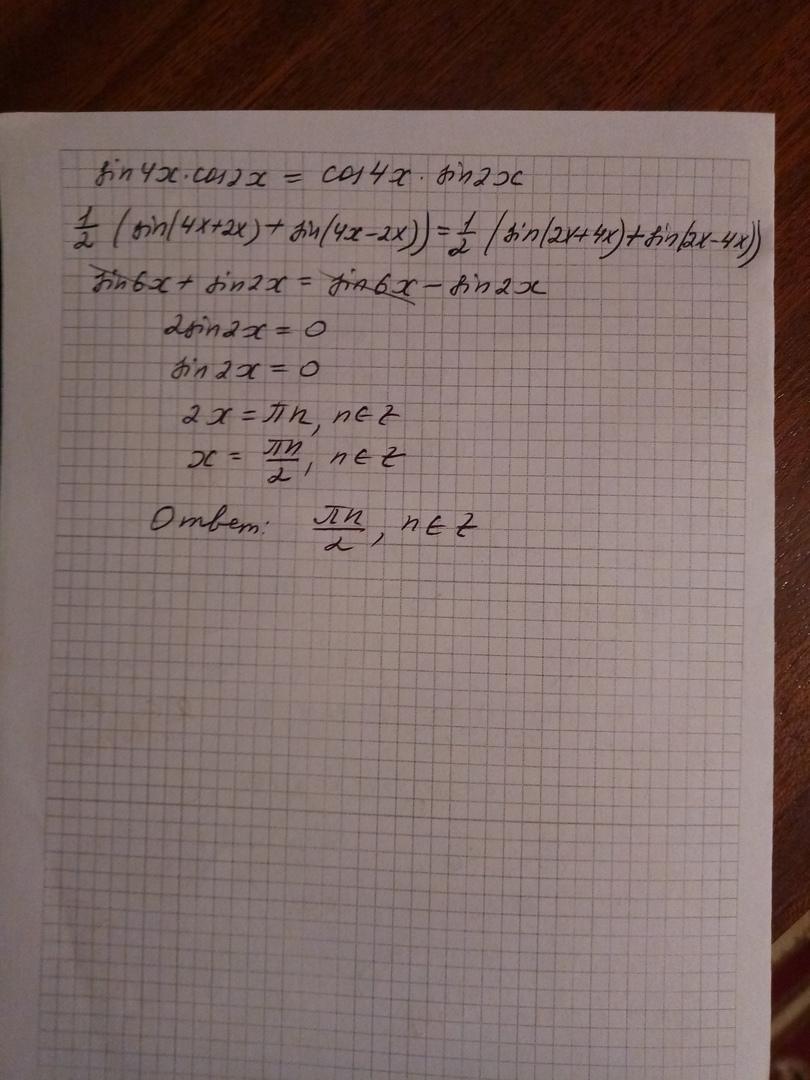 sin4x·cos2x = cos4x · sin2x
1/2 (sin(4x+2x)+ sin(4x-2x))=1/2 (sin(2x+4x)+sin(2x-4x))
sin6x + sin2x = sin6x - sin2x
2sin2x = 0
sin2x = 0
2x = πn, n∈Z
x = πn/2, n∈Z
Ответ: πn/2, n∈Z